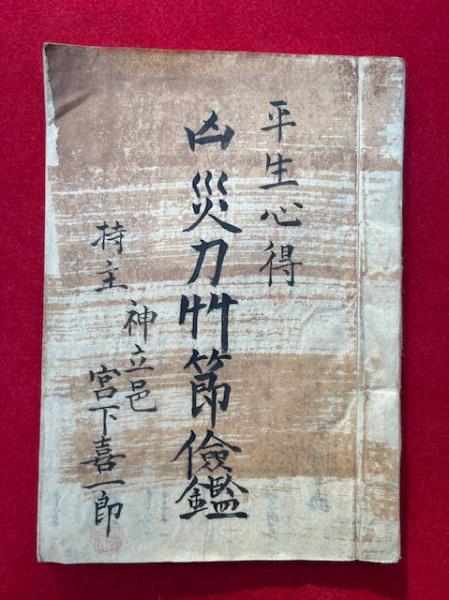 平生心得
凶災力艸節儉鑑
持主 神立邑
宮下喜一郎